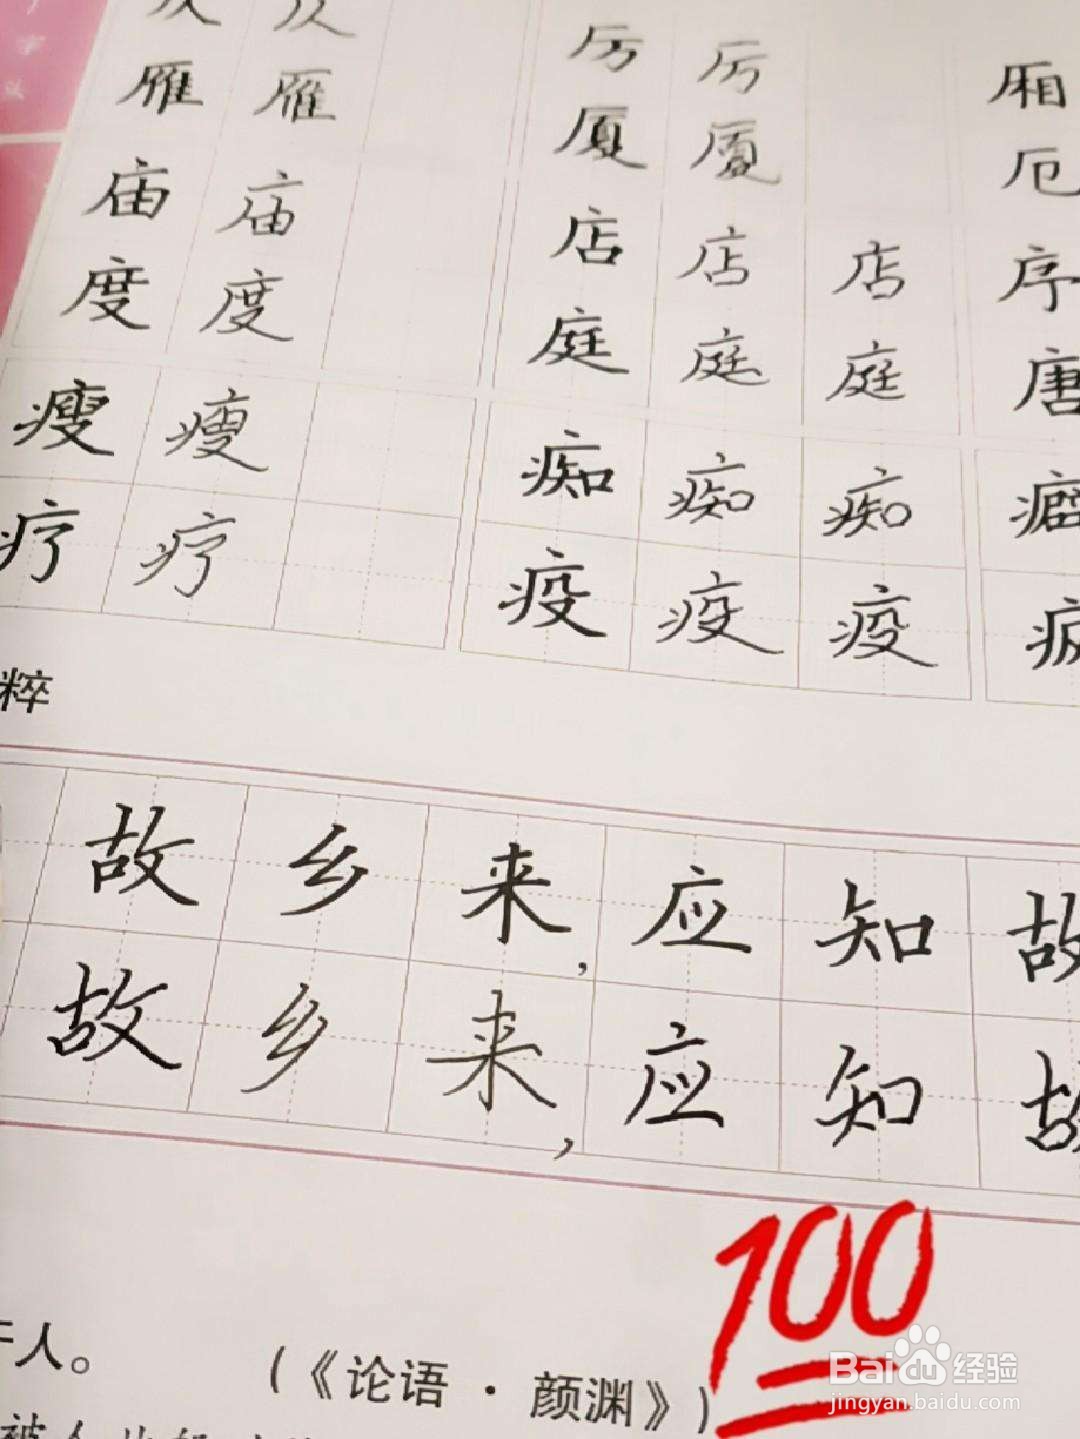 雁 雁 厉 厉 厢
庙 庙 厦 厦 厄
度 度 店 店 店 序
瘦 瘦 庭 庭 庭 唐
疗 疗 痴 痴 痴
疫 疫 疫
粹
故乡来,应知故
故乡来,应知故
100
人。 (《论语·颜渊》)
Baidu经验
jingyan.baidu.com